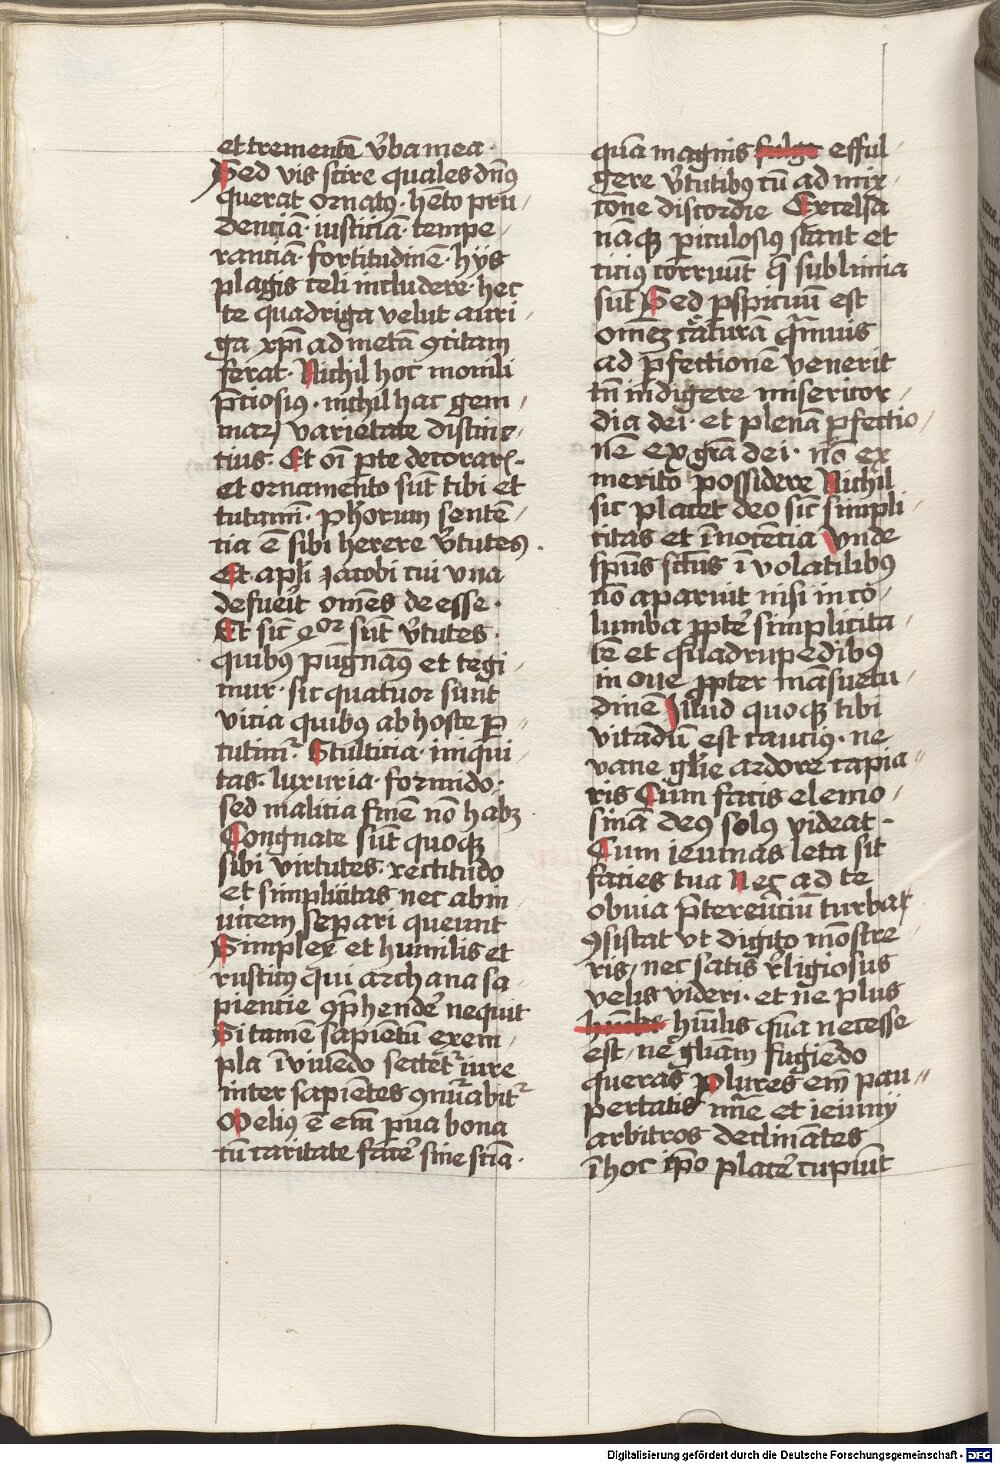 et trementē v̓ba mea·
Sed vis scire quales dn̄us
querat ornatꝰ· hēto pru
denciā· iusticiā· tempe
rantiā· fortitudinē· hijs
plagis celi includere· hec
te quadriga velut auri
ga xpī ad metā ꝯcitam
ferat· Nichil hoc monili
p̄ciosiꝰ· nichil hac gem
maꝝ varietate distinc
tius· Et oī pte decoraris·
et ornamento sūt tibi et
tutamī· phorum senten
tia ē sibi herere v̓tutes·
Et apli Jacobi cui vna
defuerit omēs deesse·
Et sic̄ eoꝝ sūt v̓tutes
quibꝰ pugnamꝰ et tegi
mur· sic quatuor sunt
vicia quibꝰ ab hoste p̲
cutimr̄· Stulticia· iniqui
tas· luxuria· formido·
sed malicia finē nō habꝫ
Congnate sūt quoqꝫ
sibi virtutes· rectitudo
et simplicitas nec abin
uicem separi queunt
Simplex et humilis et
rusticꝰ qui archana sa
pientie ꝯp̄hende nequit
Si tamē sapientū exem
pla ī viuēdo sectet̄ iure
inter sapientes ꝯnūabit̄
Meliꝰ ē em̄ pua bona
cū caritate face sine sciā·
quā magnis fulge efful
gere v̓tutibꝰ cū ad mix
cone discordie Excelsa
nāqꝫ piculosiꝰ stant et
ciciꝰ corruūt q̄ sublimia
sūt Sed p̲spicuū est
omēꝫ caturā quāuis
ad p̲fectionē venerit
tn̄ indigere misericor
dia dei· et plenā p̲fectio
nē ex grā dei· nō ex
merito possidere Nichil
sic placet deo sic̄ simpli
citas et īnocētia Vnde
sp̄us sctūs ī volatilibꝰ
nō aparuit nisi in co
lumba ppte simplicita
tē et quadrupedibꝰ
in oue ppter māsuetu
dinē Illud quoqꝫ tibi
vitādū est cauciꝰ· ne
vane glīe ardore capia
ris Cum facis elemo
sinā deꝰ solꝰ videat·
Cum ieiunas leta sit
facies tua Nec ad te
obuia p̄tereūciū turbaꝝ
ꝯsistat vt digito mōstre
ris/ nec satis r̓ligiosus
velis videri· et ne plus
hūilis hūilis quā necesse
est/ ne gl̄iam fugiēdo
queras plures em̄ pau
pertatis mīe et ieiunij
arbitros declinātes
ī hoc ip̄o place cupiūt
Digitalisierung gefördert durch die Deutsche Forschungsgemeinschaft - DFG